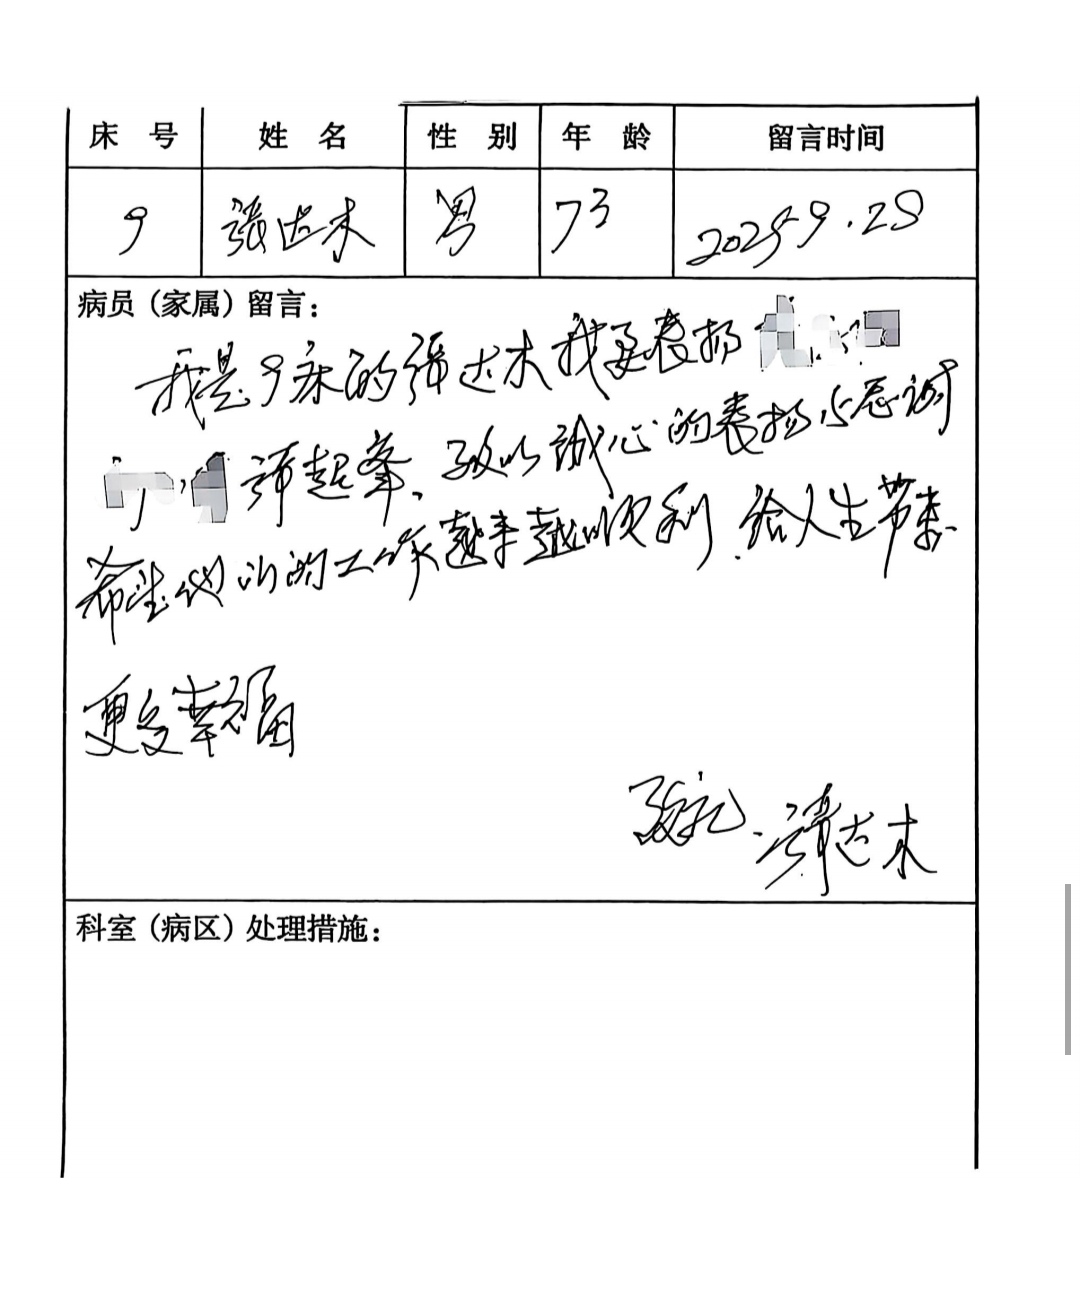 床号 姓名 性别 年龄 留言时间
9 张达木 男 73 2025 9.28
病员（家属）留言：
我是9床的张达木我要表扬
起峰、致以诚心的表扬与感谢
希望他们的工作越来越顺利.给人生带来
更多幸福
致礼. 张达木
科室（病区）处理措施：